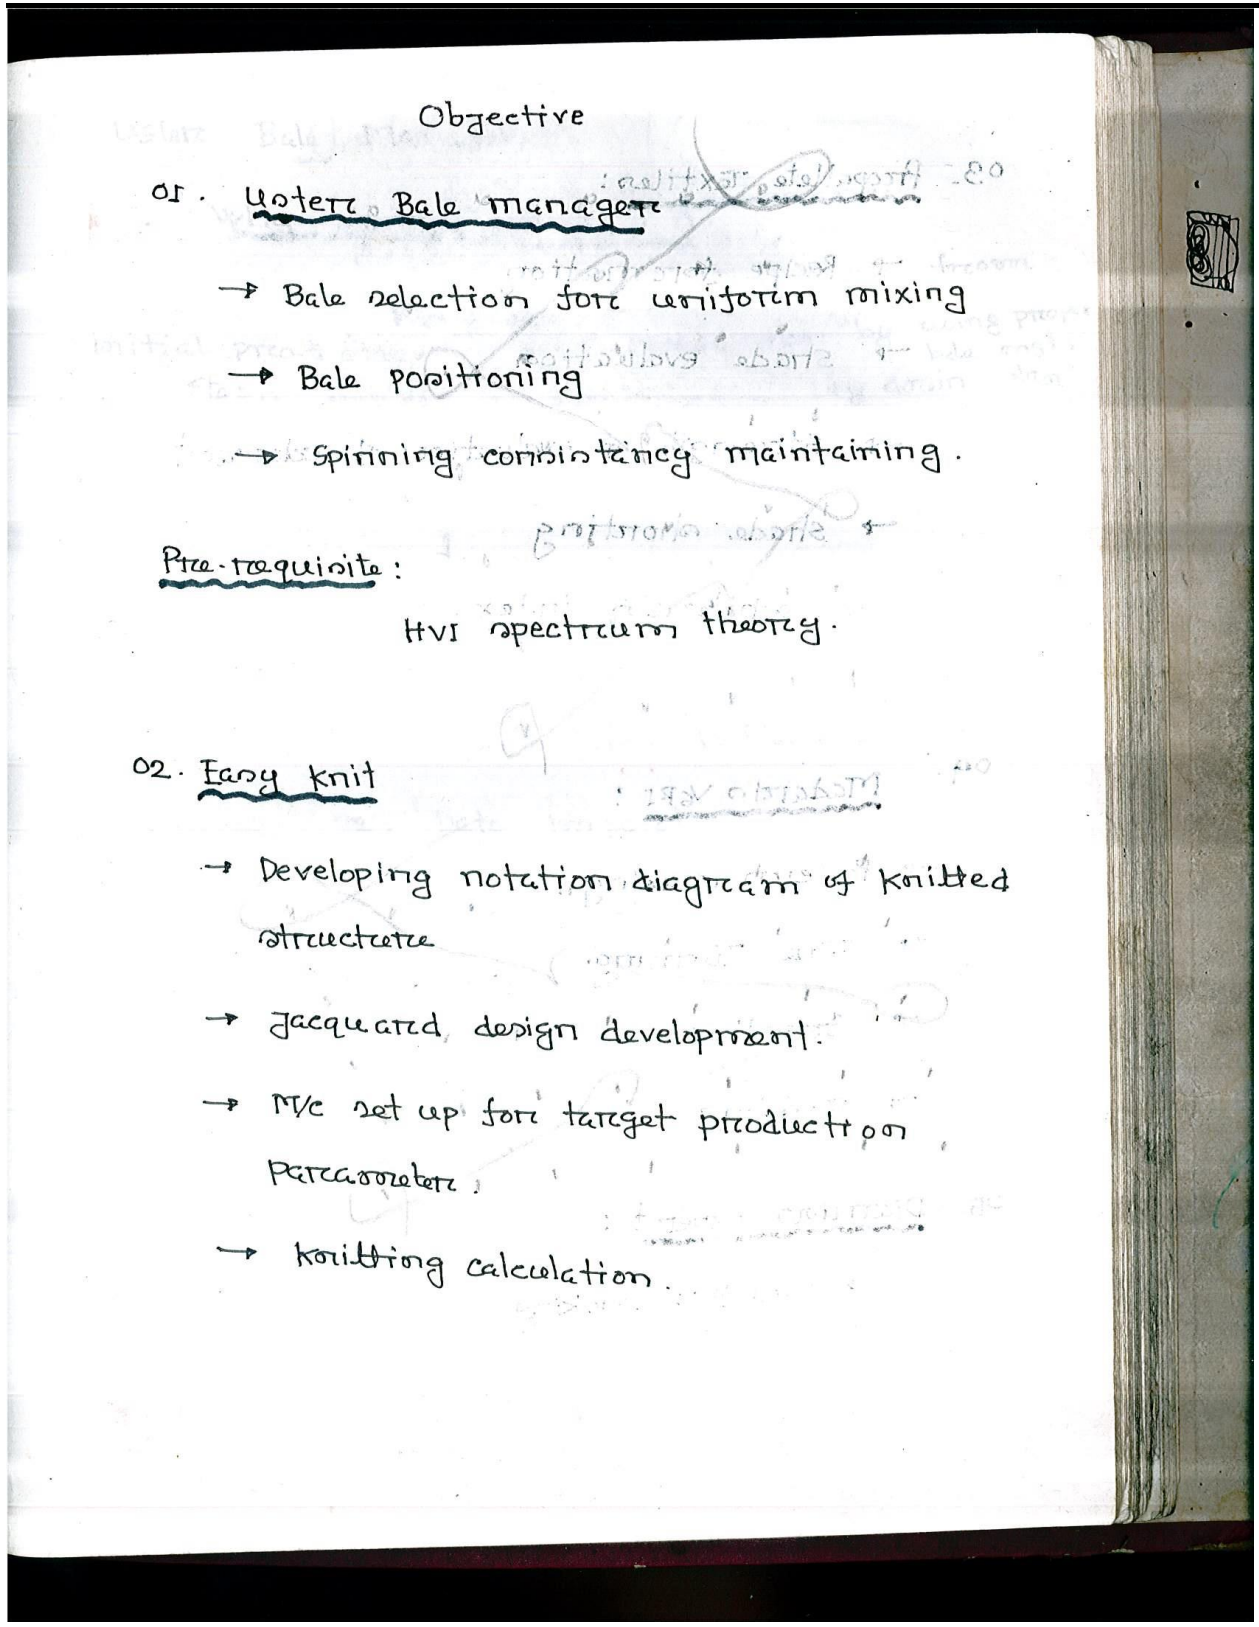 Objective
01. Uster Bale manager
→ Bale selection for uniform mixing
→ Bale positioning
→ Spinning consistancy maintaining.
Pre-requisite:
HVI spectrum theory.
02. Easy knit
→ Developing notation diagram of knitted
structure
→ Jacquard design development.
→ M/c set up for target production
parameter.
→ Knitting calculation.